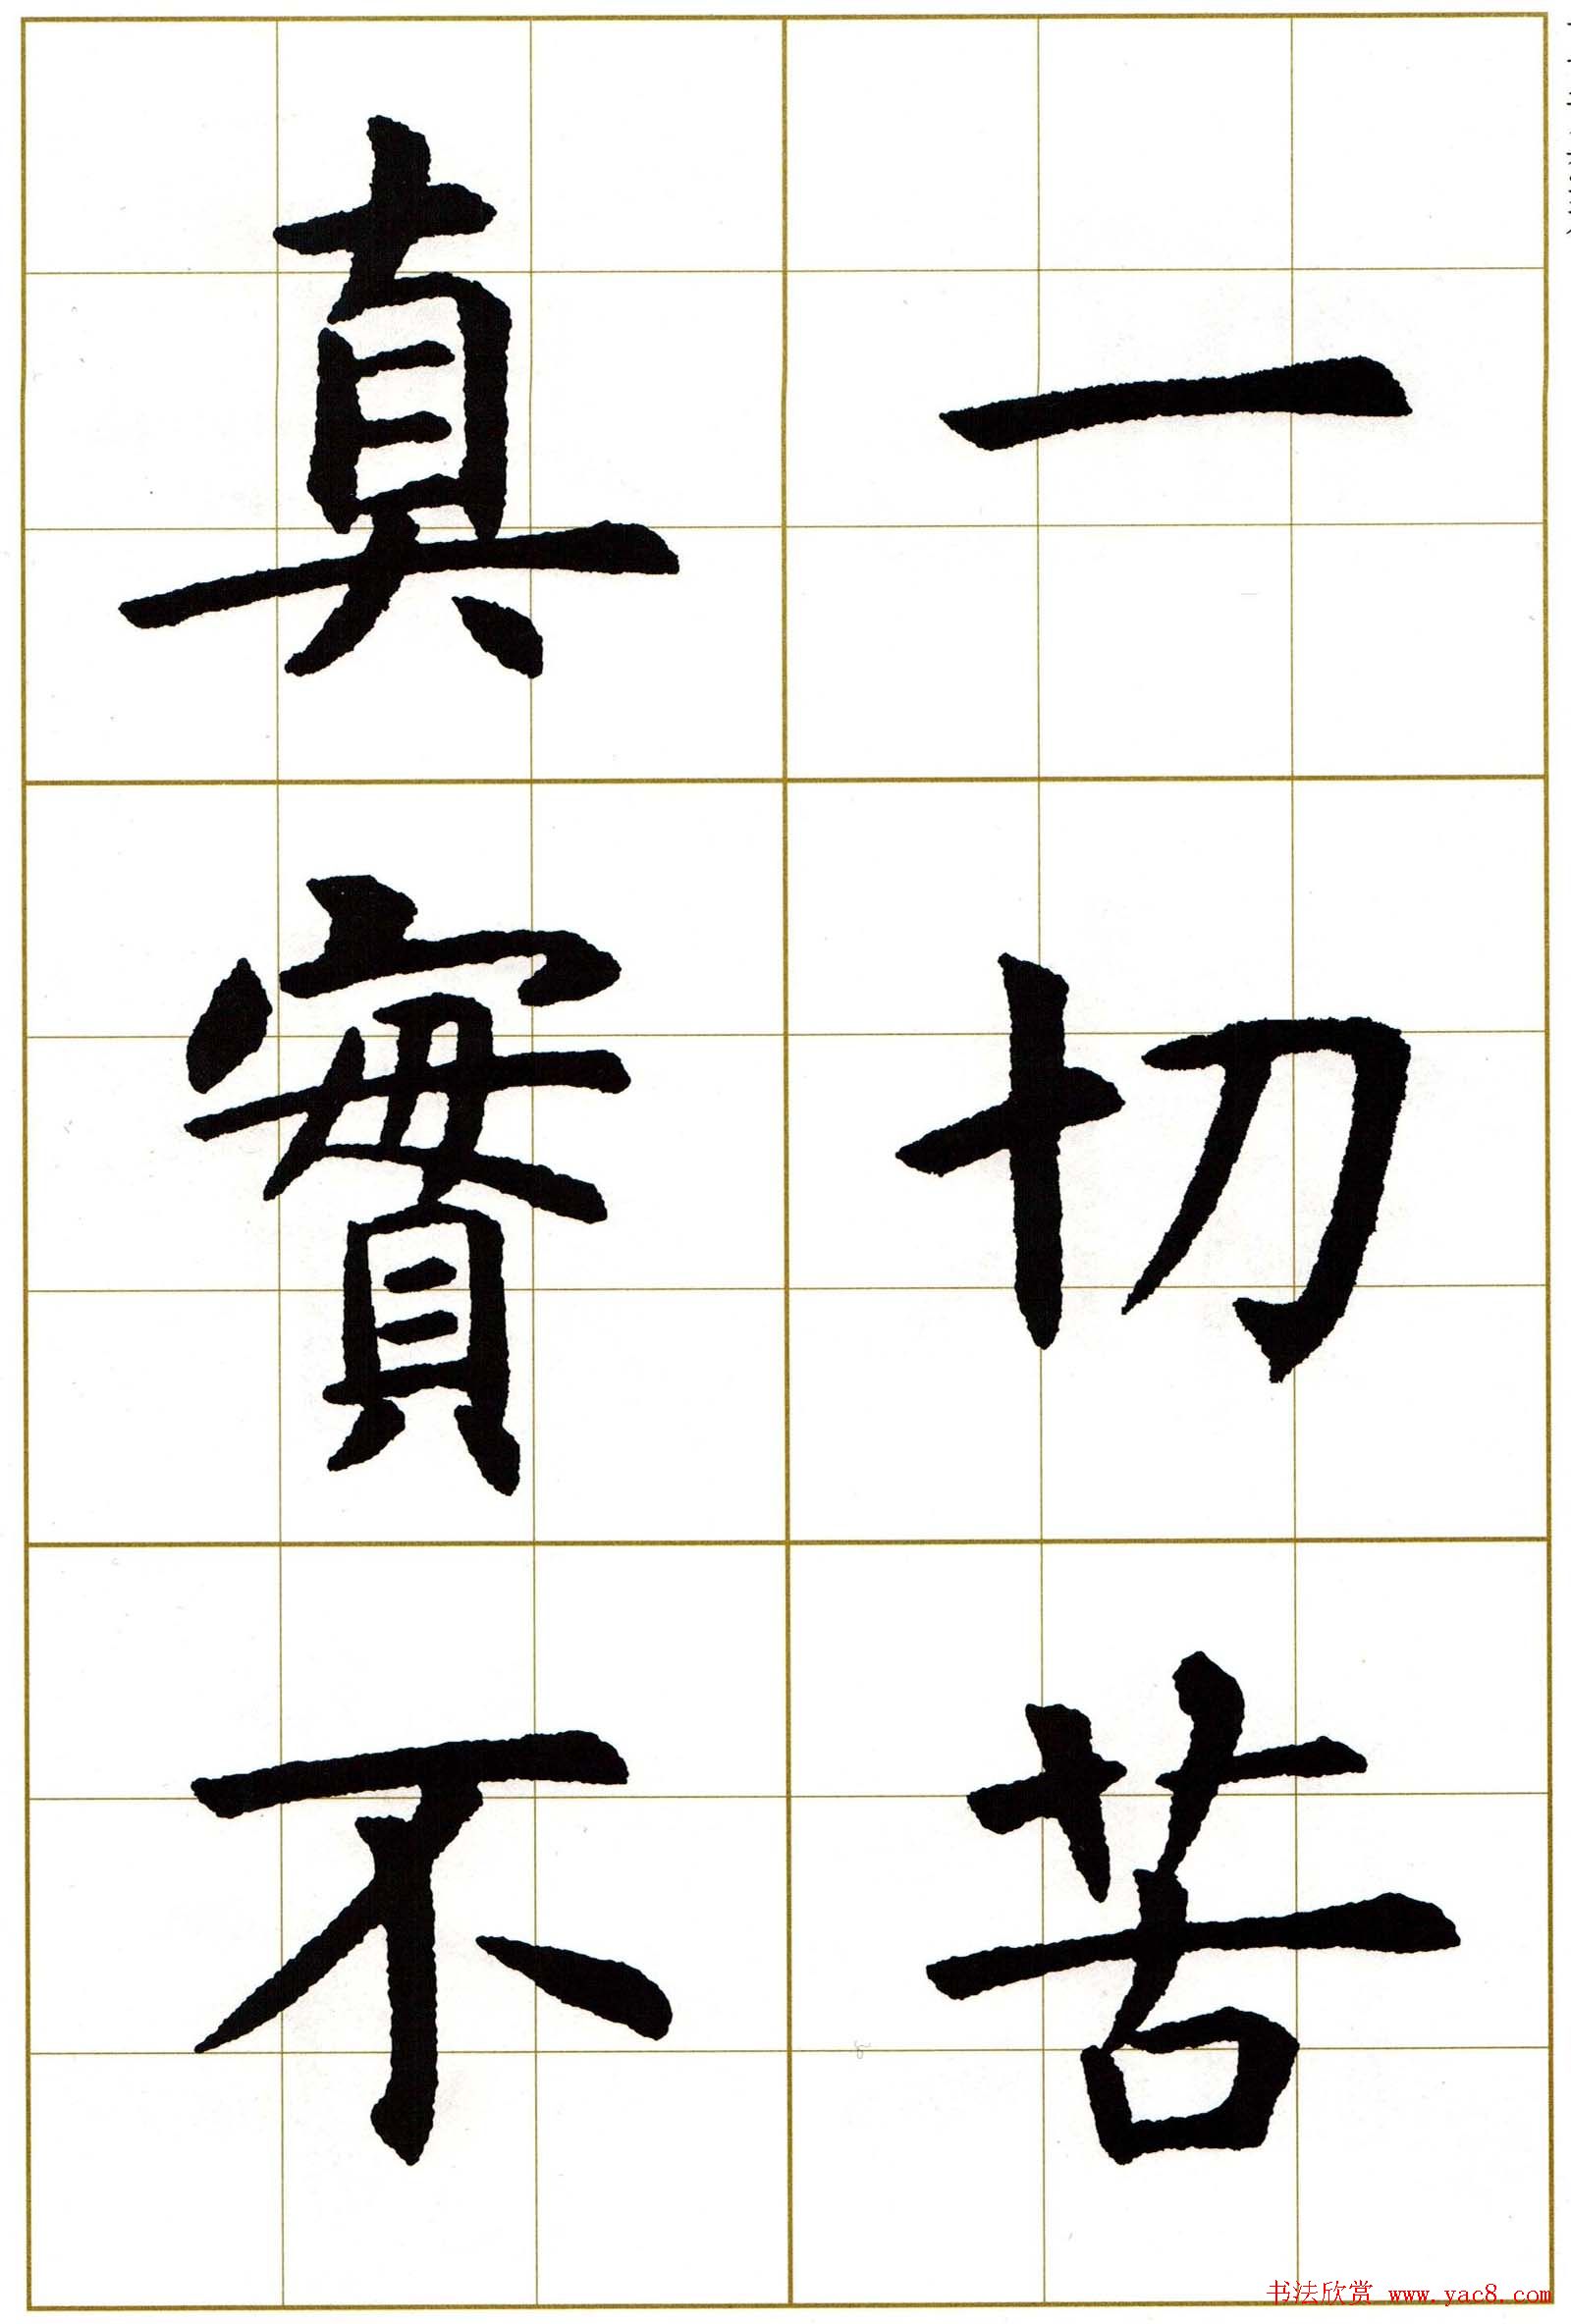 一切苦
真實不
书法欣赏 www.yac8.com